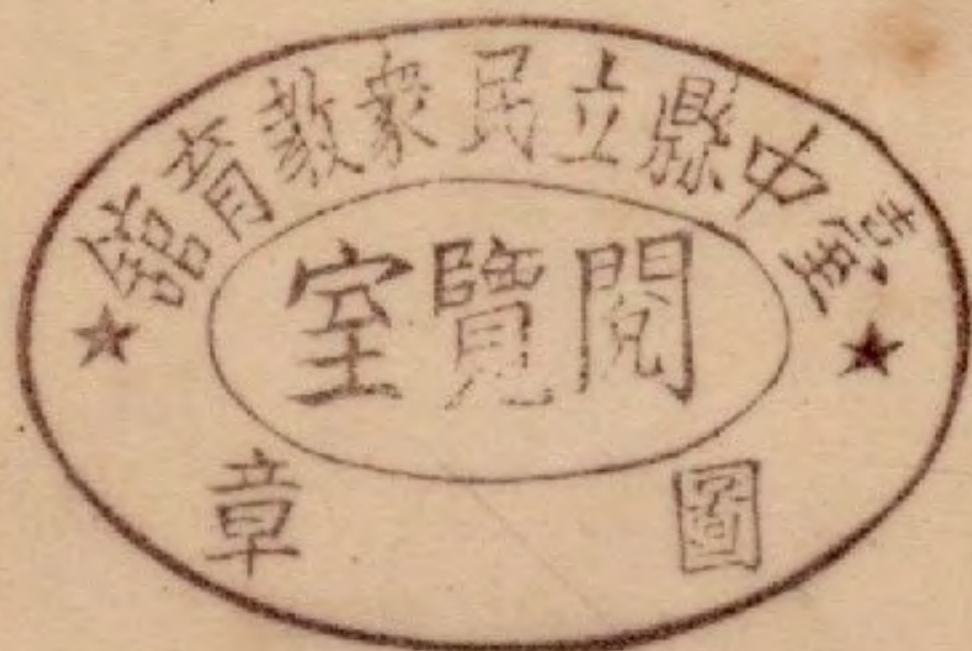 臺中縣立民衆教育舘
閱覽室
圖章